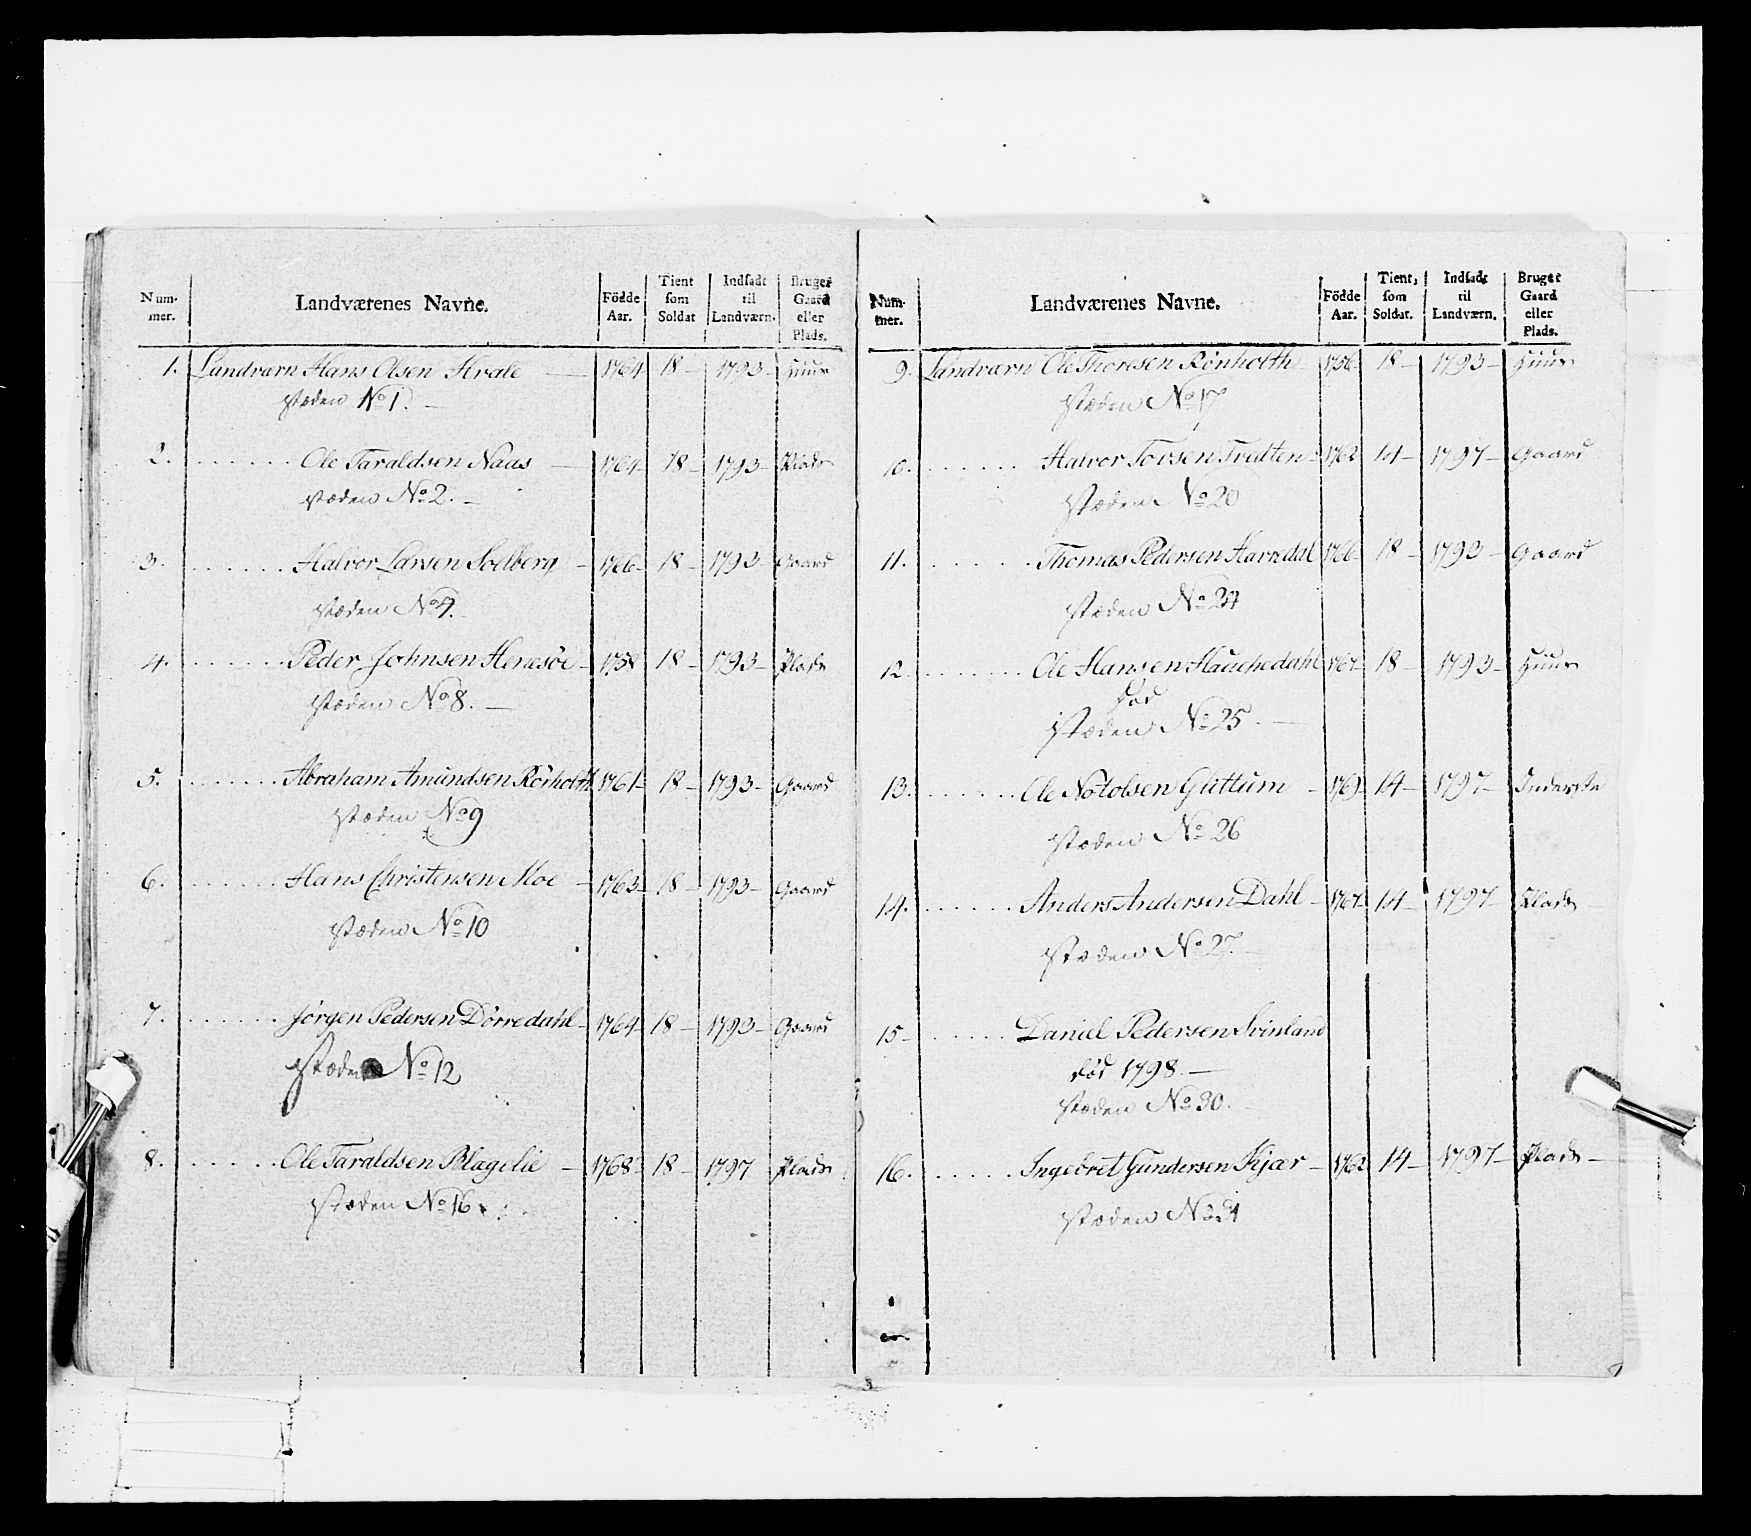 Num-mer. Landværenes Navne. Födde Aar. Tient som Soldat Indsadt til Landværn. Bruger Gaard eller Plads.
1. Landværn Hans Olsen Hvale — 1764 18 — 1793 — Huus
Støden No 1. —
2. . . . . . . Ole Taraldsen Naas — 1764 18 — 1793 — Plads
Støden No 2. —
3. . . . . . . Halvor Larsen Solberg — 1766 18 — 1793 Gaard
Støden No 7.
4. . . . . . . Peder Johnsen Henesöe — 1758 18 — 1793 — Plads
Støden No 8. —
5. . . . . . . Abraham Amundsen Rörholth 1761 — 18 — 1793 — Gaard
Støden No 9
6. . . . . . . Hans Christensen Moe — 1763 18 — 1793 — Gaard
Støden No 10
7. . . . . . . Jörgen Pedersen Dörredahl — 1764 18 — 1793 — Gaard
Støden No 12
8. . . . . . . Ole Taraldsen Blagelie — 1768 18 — 1797 Plads
Støden No 16
Num-mer. Landværenes Navne. Födde Aar. Tient, som Soldat. Indsadt til Landværn. Bruger Gaard eller Plads.
9. Landværn Ole Thoresen Rönholth 1756 18 — 1793 — Huus
Støden No 17
10. . . . . . . Halvor Tovsen Tvedten 1762 14 — 1797 — Gaard
Støden No 20
11. . . . . . . Thomas Pedersen 1766 18 — 1793 — Gaard
Støden No 24
12. . . . . . . Ole Hansen Hauchedahl 1767 18 — 1793 — Huus
död
Støden No 25. —
13. . . . . . . Ole Notolsen Guttum — 1769 14 — 1797 — Inderste
Støden No 26
14. . . . . . . Anders Andersen Dahl — 1767 14 — 1797 — Plads
Støden No 27. —
15 — . . . . . . Daniel Pedersen Svinland
död 1798. —
Støden No 30.
16. . . . . . . Ingebret Gundersen Kjær — 1762 14 — 1797 — Plads —
Støden No 31